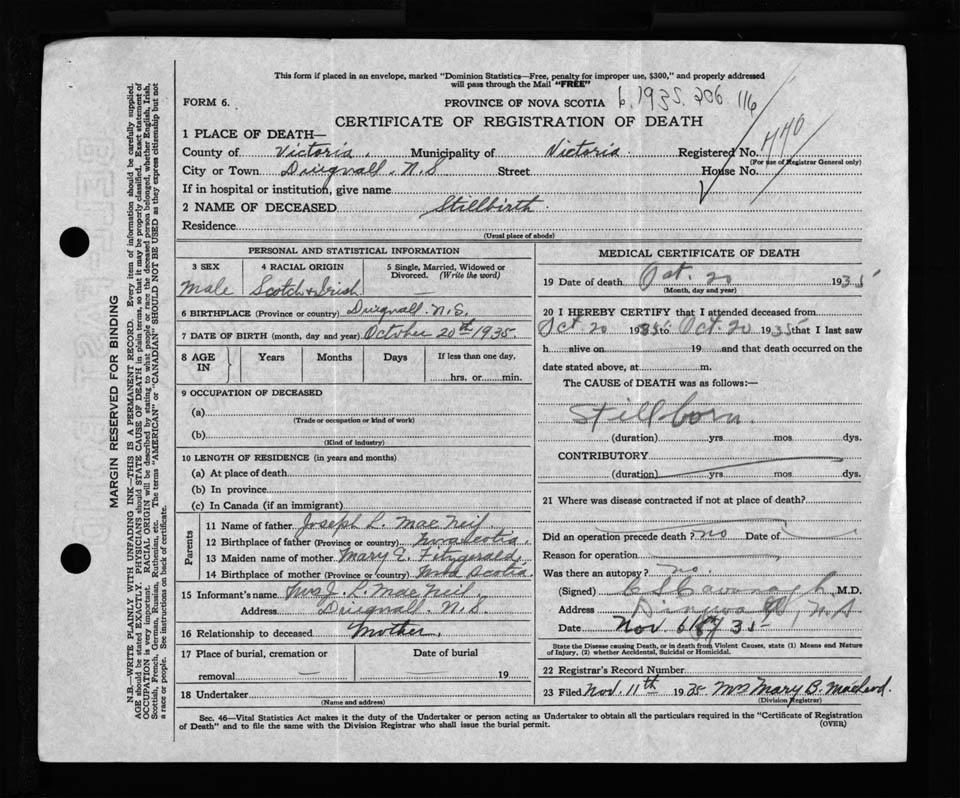 This form if placed in an envelope, marked "Dominion Statistics—Free, penalty for improper use, $300," and properly addressed
will pass through the Mail "FREE"
FORM 6.
PROVINCE OF NOVA SCOTIA
1935. 206 116
CERTIFICATE OF REGISTRATION OF DEATH
440
1 PLACE OF DEATH—
County of Victoria. Municipality of Victoria. Registered No.
(For use of Registrar General only)
City or Town N.S Street House No.
If in hospital or institution, give name
2 NAME OF DECEASED Stillbirth.
Residence
(Usual place of abode)
PERSONAL AND STATISTICAL INFORMATION
3 SEX 4 RACIAL ORIGIN 5 Single, Married, Widowed or Divorced. (Write the word)
Male Scotch & Irish
6 BIRTHPLACE (Province or country) N.S.
7 DATE OF BIRTH (month, day and year) October 20th 1935.
8 AGE IN Years Months Days If less than one day,
hrs. or min.
9 OCCUPATION OF DECEASED
(a)
(Trade or occupation or kind of work)
(b)
(Kind of industry)
10 LENGTH OF RESIDENCE (in years and months)
(a) At place of death
(b) In province
(c) In Canada (if an immigrant)
Parents
11 Name of father Joseph L. MacNeil
12 Birthplace of father (Province or country) Nova Scotia.
13 Maiden name of mother Mary E. Fitzgerald.
14 Birthplace of mother (Province or country) Nova Scotia.
15 Informant's name Mrs J. L. MacNeil
Address N.S.
16 Relationship to deceased Mother.
17 Place of burial, cremation or Date of burial
removal 19
18 Undertaker
(Name and address)
MEDICAL CERTIFICATE OF DEATH
19 Date of death Oct. 20 1935
(Month, day and year)
20 I HEREBY CERTIFY that I attended deceased from
Oct. 20 1935 to Oct. 20 1935 that I last saw
h alive on 19 and that death occurred on the
date stated above, at m.
The CAUSE of DEATH was as follows:—
Stillborn.
(duration) yrs mos dys.
CONTRIBUTORY
(duration) yrs mos dys.
21 Where was disease contracted if not at place of death?
Did an operation precede death? no Date of
Reason for operation
Was there an autopsy? no.
(Signed) M.D.
Address N S
Date Nov 35
State the Disease causing Death, or in death from Violent Causes, state (1) Means and Nature
of Injury, (2) whether Accidental, Suicidal or Homicidal.
22 Registrar's Record Number
23 Filed Nov. 11th 1935 Mrs Mary B. Macleod.
(Division Registrar)
Sec. 46—Vital Statistics Act makes it the duty of the Undertaker or person acting as Undertaker to obtain all the particulars required in the "Certificate of Registration
of Death" and to file the same with the Division Registrar who shall issue the burial permit.
(OVER)
MARGIN RESERVED FOR BINDING
N.B.—WRITE PLAINLY WITH UNFADING INK—THIS IS A PERMANENT RECORD. Every item of information should be carefully supplied.
AGE should be stated EXACTLY. PHYSICIANS should STATE CAUSE OF DEATH in plain terms, so that it may be properly classified. Exact statement of
OCCUPATION is very important. RACIAL ORIGIN will be described by stating to what people or race the deceased person belonged, whether English, Irish,
Scottish, French, German, Russian, Ruthenian, etc. The terms "AMERICAN" or "CANADIAN" SHOULD NOT BE USED as they express citizenship but not
a race or people. See instructions on back of certificate.